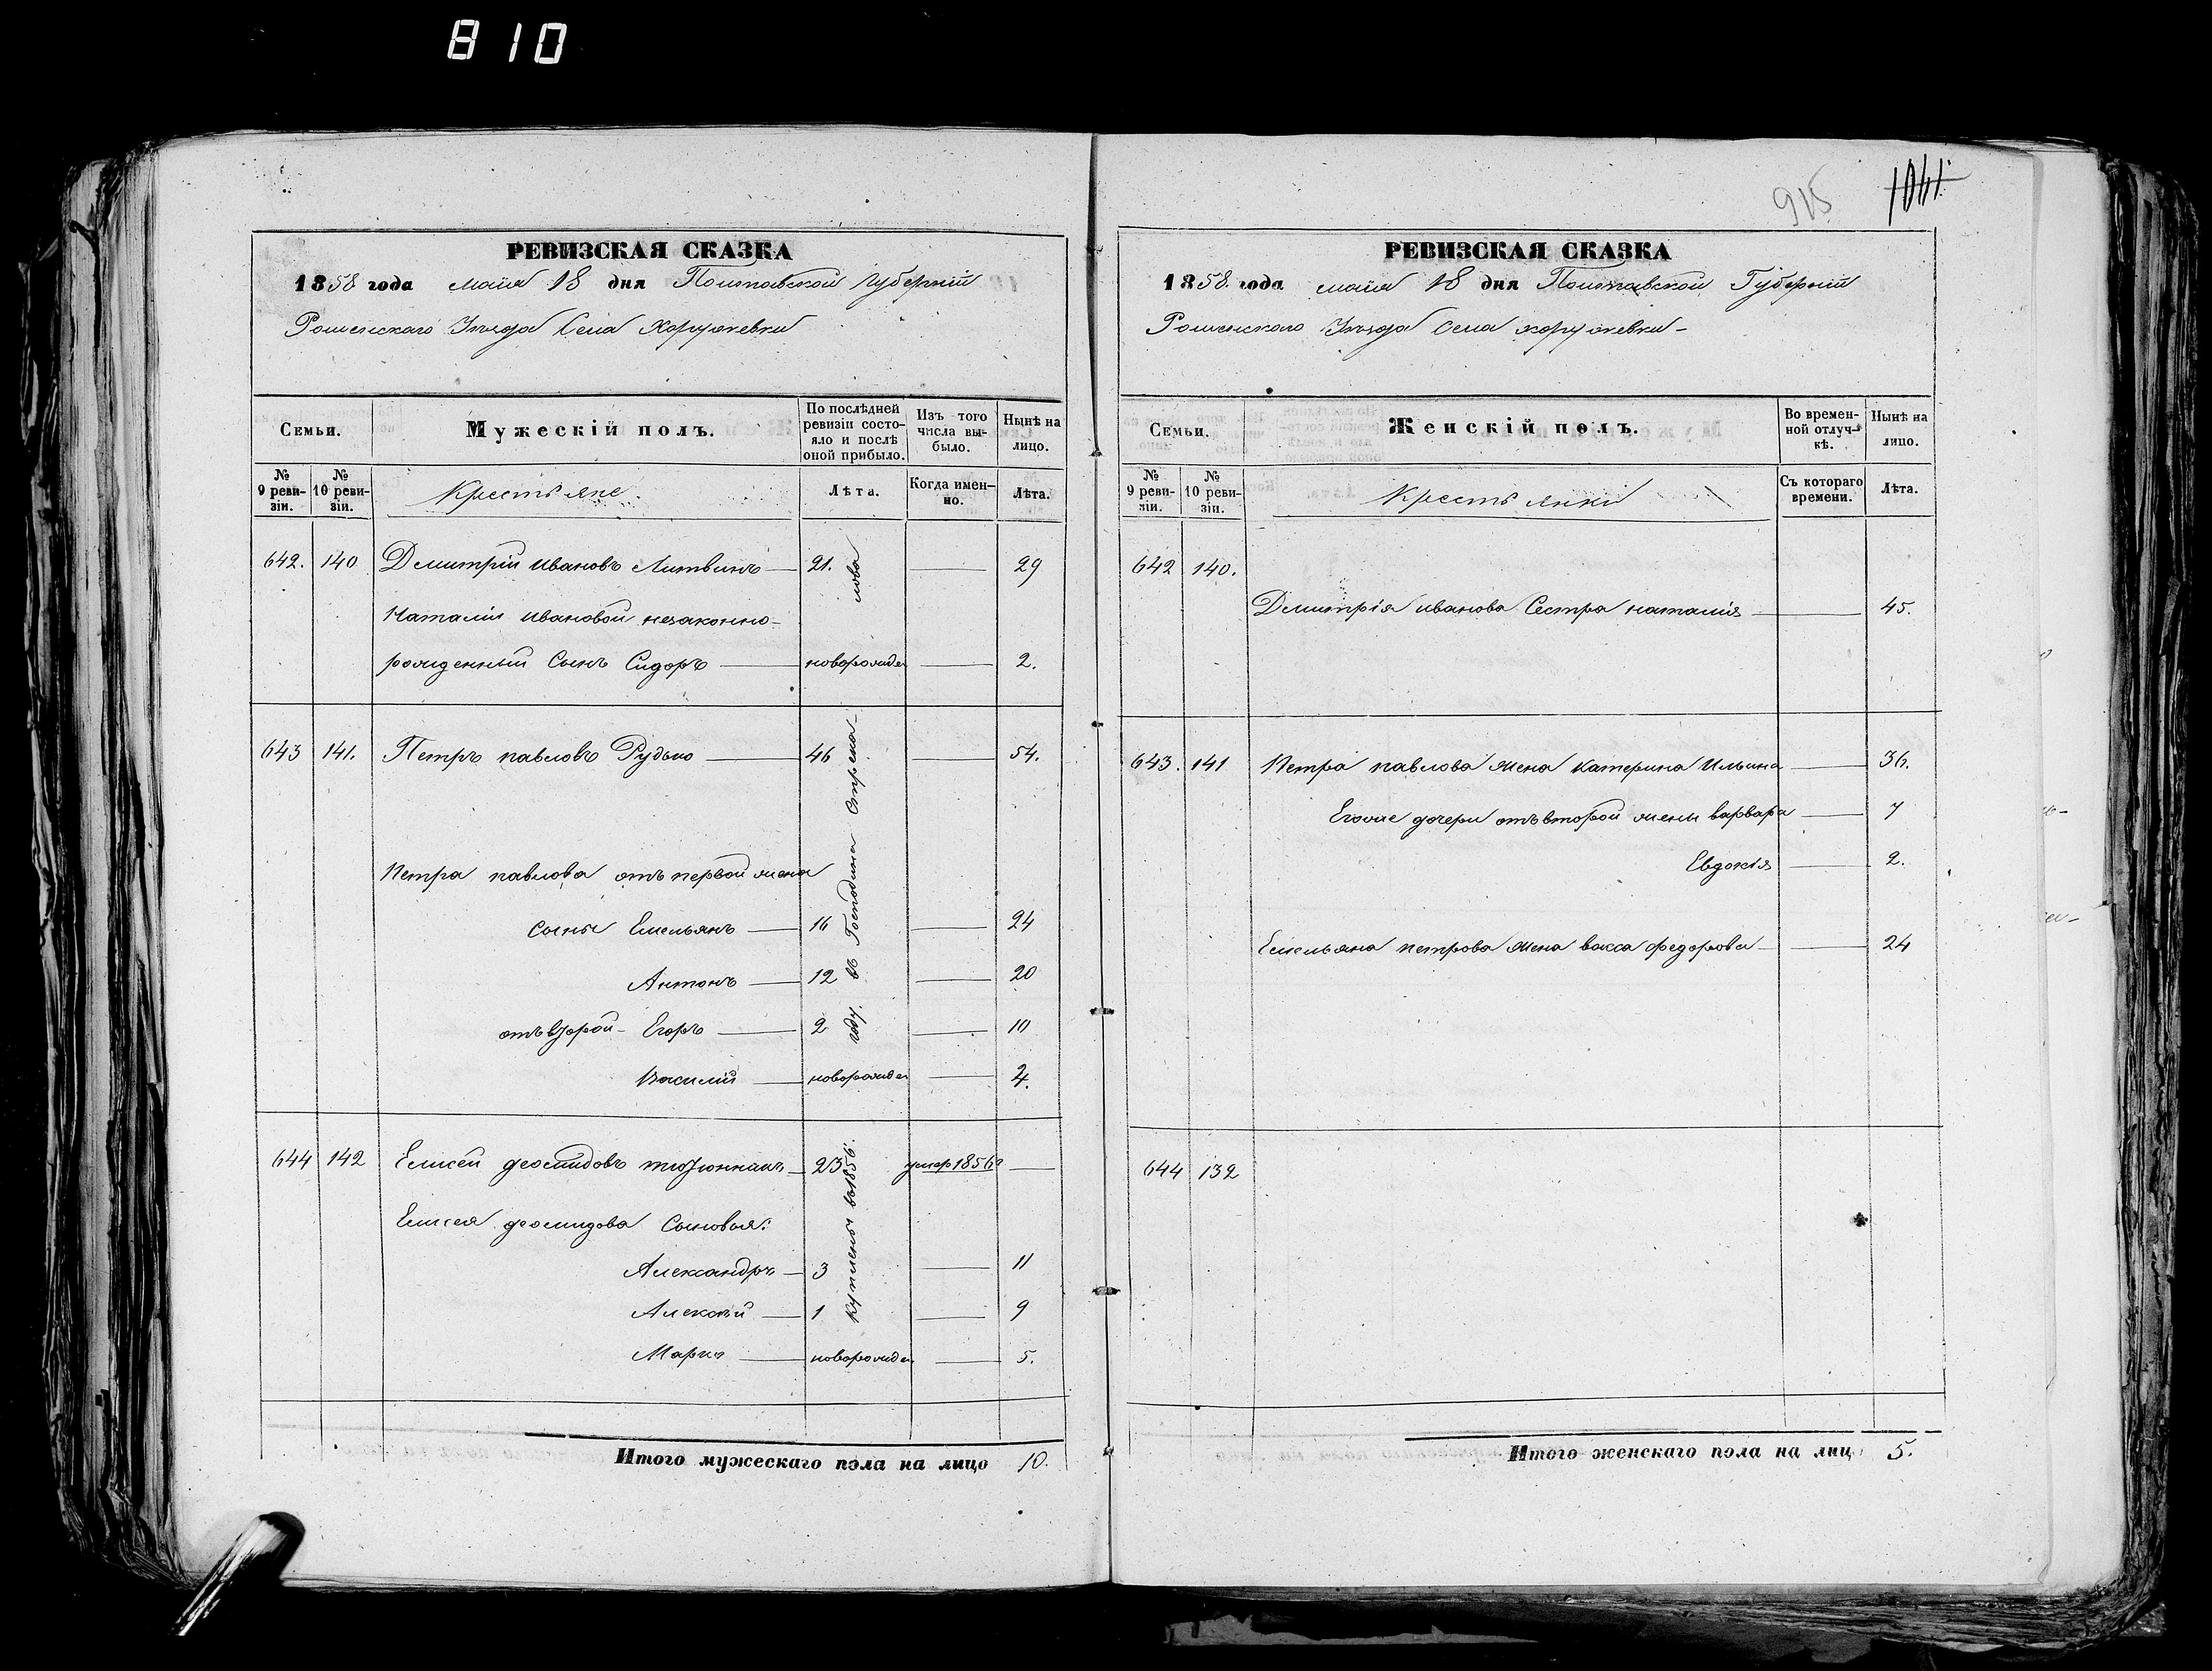 810
915 1041.
РЕВИЗСКАЯ СКАЗКА
1858 года маия 18 дня Полтавской Губерніи
Роменскаго Уезда Села Хоружевки
Семьи. Мужескій полъ. По послѣдней ревизіи состояло и послѣ оной прибыло. Изъ того числа выбыло. Нынѣ на лицо.
№ 9 ревизіи. № 10 ревизіи. Крестьяне. Лѣта. Когда именно. Лѣта.
642. 140 Дмитрій Ивановъ Литвинъ 21. 29
Наталіи Ивановой незаконно-
рожденный Сынъ Сидоръ новорожде 2.
643 141. Петръ павловъ Рудько 46 54.
Петра павлова отъ первой жены
сыны Емельянъ 16 24
Антонъ 12 20
отъ второй Егоръ 2 10
Василій новорожден 4.
644 142 Елисей деомидовъ 23 умер 1856 г
Елисея деомидова Сыновья:
Александръ 3 11
Алексѣй 1 9
Марко новорожден 5.
куплены въ 1856 году. въ Господина
Итого мужескаго пола на лицо 10.
РЕВИЗСКАЯ СКАЗКА
1858. года маия 18 дня Полтавской Губерніи
Роменскаго Уезда Села хоружевки-
Семьи. Женскій полъ. Во временной отлучкѣ. Нынѣ на лицо.
№ 9 ревизіи. № 10 ревизіи. Крестьянки Съ котораго времени. Лѣта.
642 140.
Дмитрія иванова Сестра наталия 45.
643. 141 Петра павлова жена катерина Ильина 36.
Еговые дочери отъ второй жены варвара 7
Евдокія 2.
Емельяна петрова жена васса федорова 24
644 132
Итого женскаго пола на лиц 5.